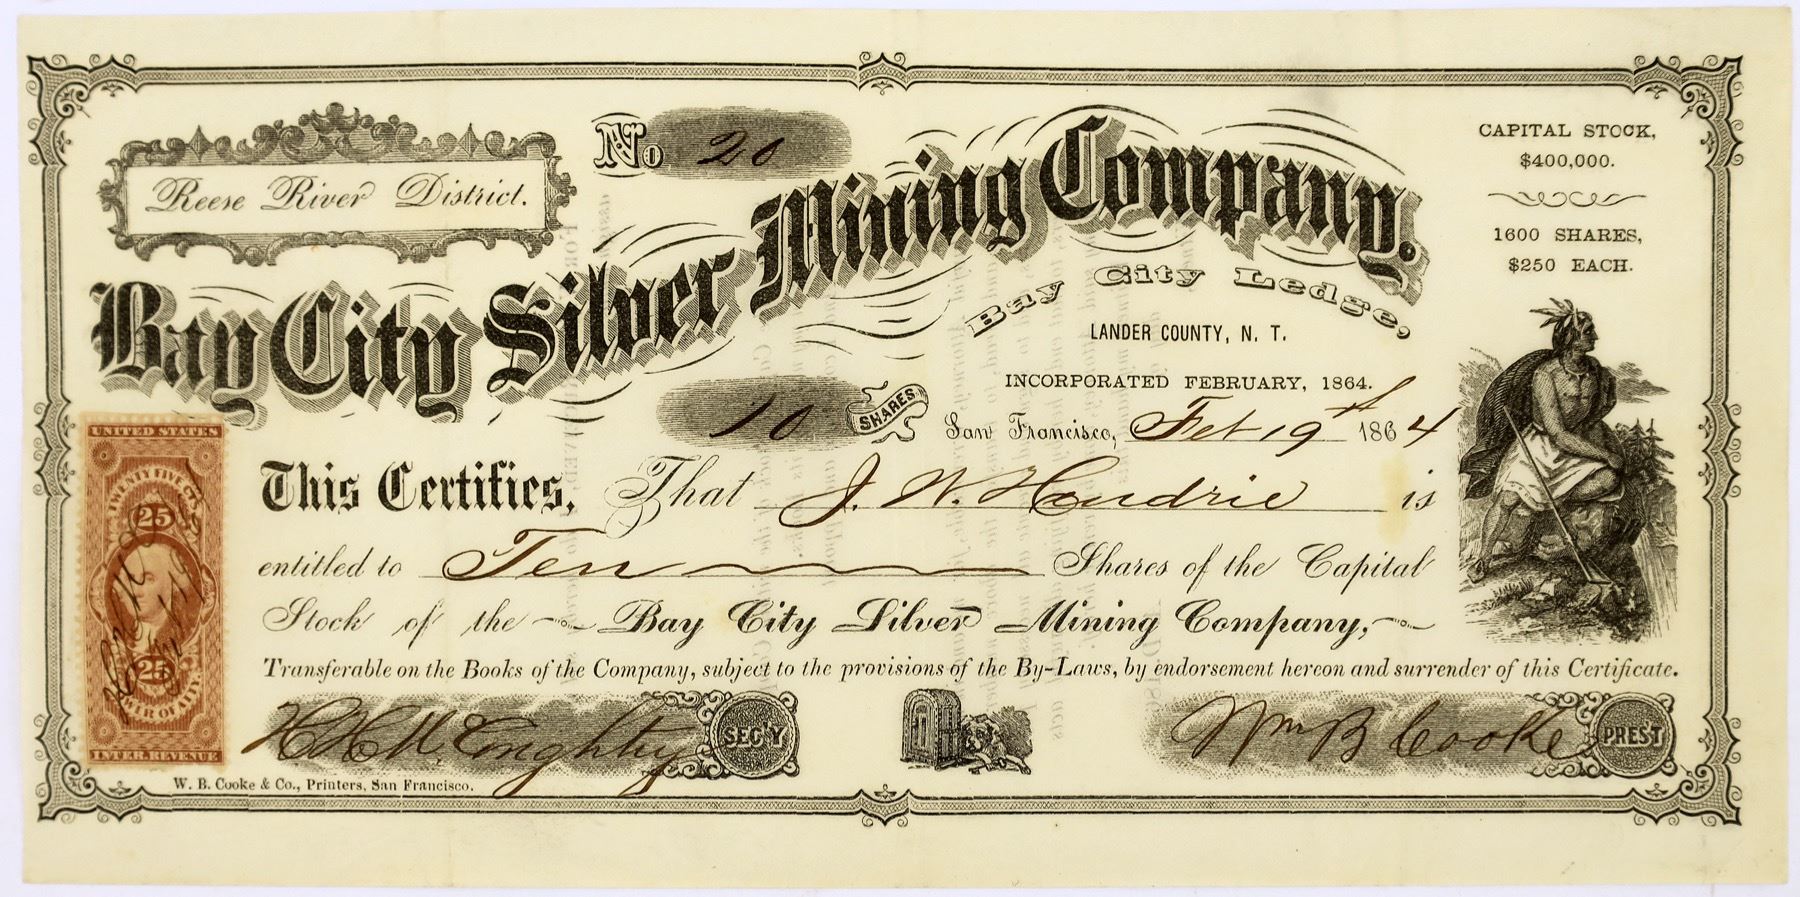 Reese River District.
No 20
Bay City Silver Mining Company.
Bay City Ledge,
LANDER COUNTY, N. T.
INCORPORATED FEBRUARY, 1864.
CAPITAL STOCK,
$400,000.
1600 SHARES,
$250 EACH.
10 SHARES
San Francisco, Feb 19th 1864
This Certifies, That J. W. Hendrie is
entitled to Ten Shares of the Capital
Stock of the Bay City Silver Mining Company,
Transferable on the Books of the Company, subject to the provisions of the By-Laws, by endorsement hereon and surrender of this Certificate.
SEC'Y
Wm B Cooke PRES'T
W. B. Cooke & Co., Printers, San Francisco.
UNITED STATES
TWENTY FIVE CTS
25
25
POWER OF ATTY.
INTER. REVENUE